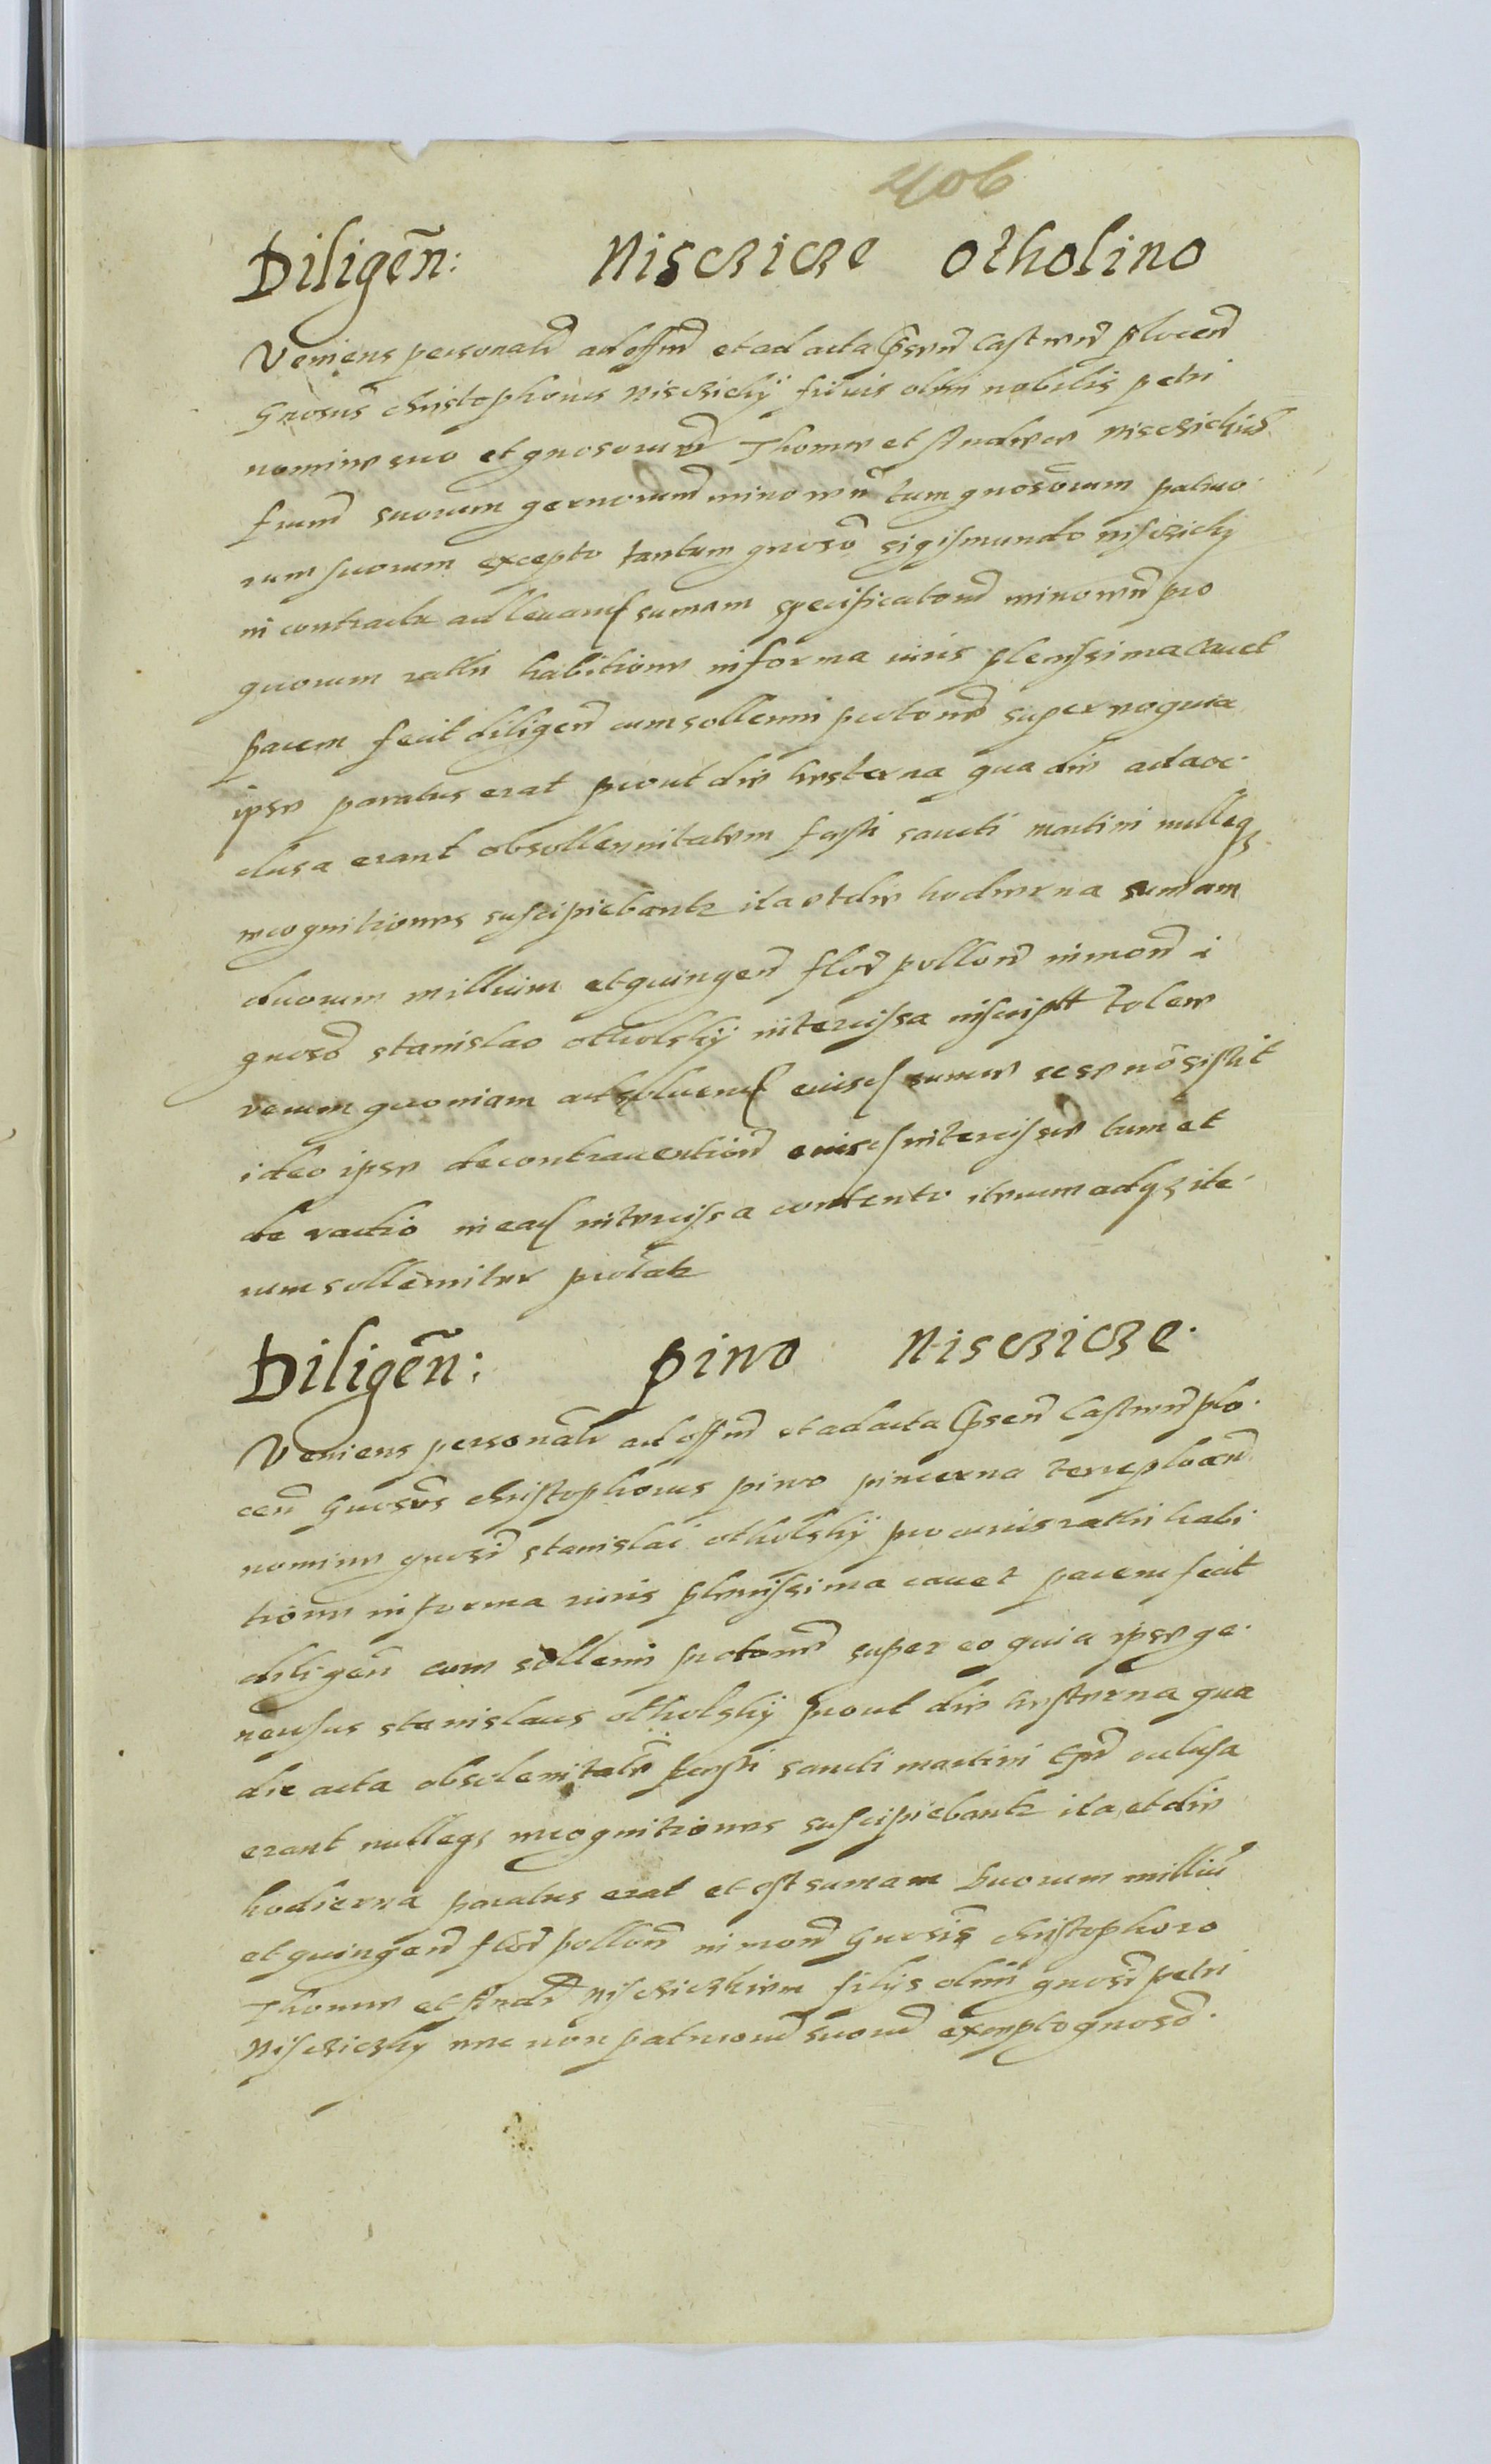 406
Diligen: Nisczicze otholino
Veniens personalr ad offm et ad acta psen Castren plocen
Gnosus christophorus nisczichij filius olim nobilis petri
nomine suo et gnosorum Thome et Andree nisczickich
frum suorum germorum minoren tum gnosorum patruo
rum suorum excepto tantum gnoso sigismundo nisczicky
in contractu ad levand sumam specificatorum minoren pro
quorum rathi habitione in forma iuris plenissima cauet
pacem fecit diligen cum sollenni protone super eo quia
ipse paratus erat prout die hesterna qua die acta oc
clusa erant ob sollennitatem festi sancti martini nulleqz
recognitiones suscipiebantr ita et die hodierna sumam
duorum millium et quingen flor pollon in mon a
gnoso stanislao otholskij intercisa inscript tolere
verum quoniam ad soluend euisd sume sese no sistit
ideo ipse de contravention euisd intercise tum et
de vadio in ead intercisa contento iterum adqz ite
rum sollemniter protatr
Diligen: pino Nisczicze
Veniens personalr ad offm et ad acta psen Castren plo
cen Gnosus christophorus pino pincerna terre plocen
nomine gnosi stanislai otholskij pro cuius rathi habi
tione in forma iuris plenissima cauet pacem fecit
diligen cum sollenni protone super eo quia ipse ge
nerosus stanislaus otholskij prout die hesterna qua
die acta ob solenitate festi sancti martini Epi oclusa
erant nulleqz recognitiones suscipiebantr ita et die
hodierna paratus erat et est sumam Duorum milliu
et quingen flor pollon in mon Gnosis christophoro
Thome et Andr nisczickiem filijs olim gnosi petri
Nisczicky nec non patruorum suorum excepto gnoso